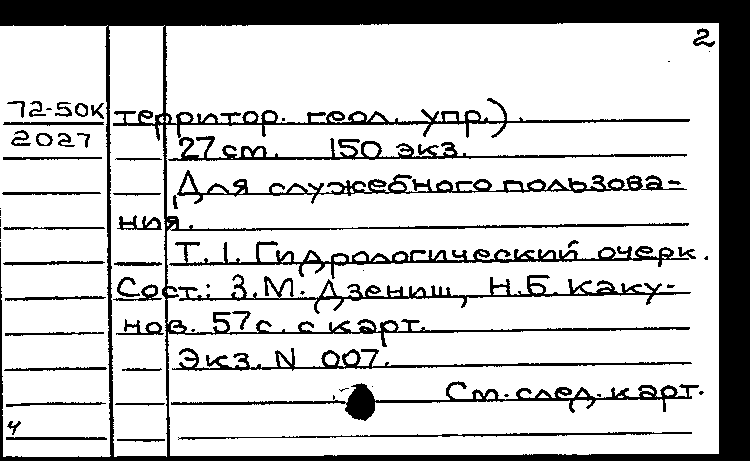 2
72-50К территор. геол. упр.).
2027
27 см. 150 экз.
Для служебного пользова-
ния.
Т. 1. Гидрологический очерк.
Сост.: З.М. Дзениш, Н.Б. Каку-
нов. 57 с. с карт.
Экз. N 007.
См. след. карт.
4